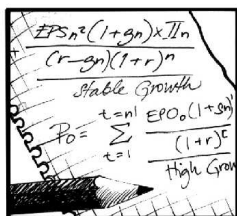 EPSn²(1+gn)×Πn
(r-gn)(1+r)ⁿ
Stable Growth
t=n1 EPO₀(1+gn)¹
P₀= Σ
t=1 (1+r)ᵗ
High Grow